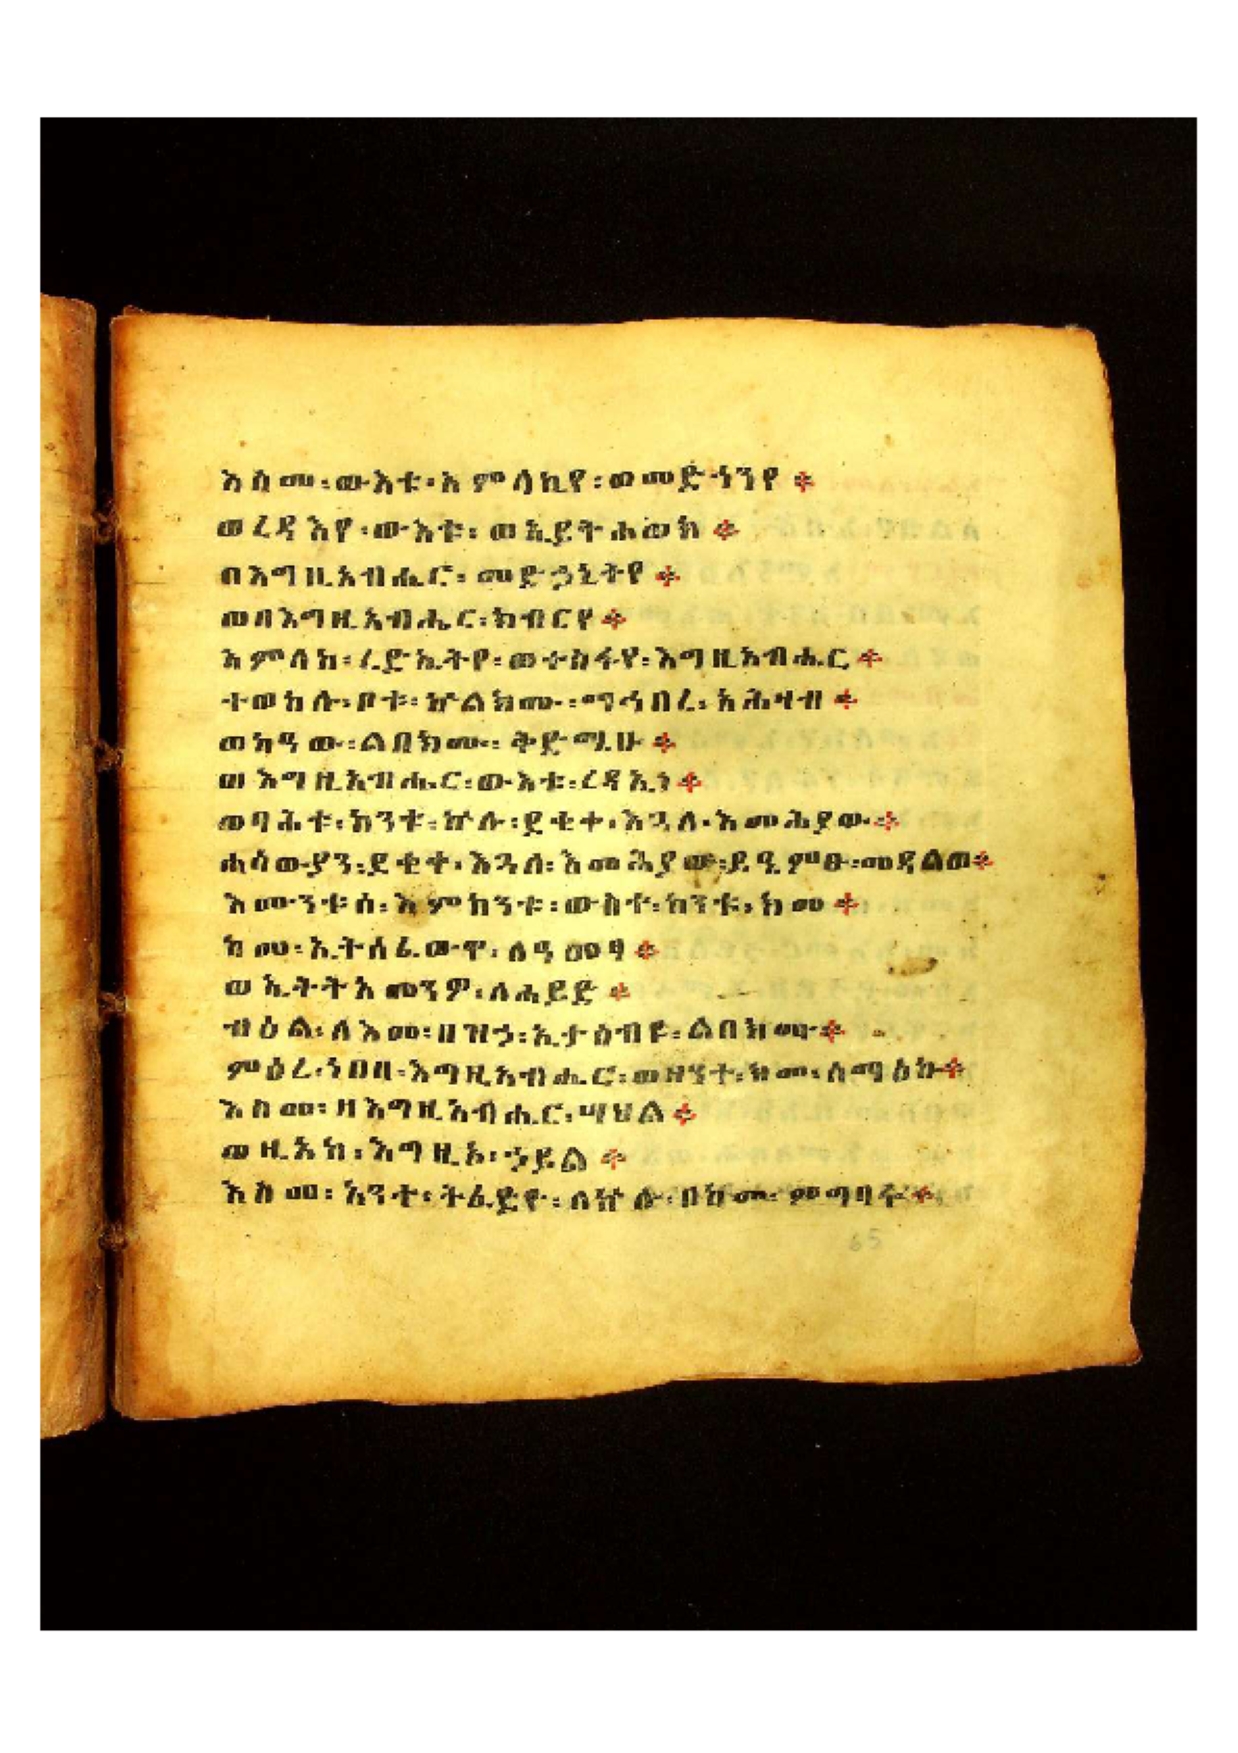 እስመ፡ውእቱ፡አምላኪየ፡ወመድኅንየ፨
ወረዳእየ፡ውእቱ፡ወኢይትሐወክ፨
በእግዚአብሔር፡መድኃኒትየ፨
ወበእግዚአብሔር፡ክብርየ፨
አምላከ፡ረድኤትየ፡ወተስፋየ፡እግዚአብሔር፨
ተወከሉ፡ቦቱ፡ኵልክሙ፡ማኅበረ፡አሕዛብ፨
ወከዓው፡ልበክሙ፡ቅድሜሁ፨
ወእግዚአብሔር፡ውእቱ፡ረዳኢነ፨
ወባሕቱ፡ከንቱ፡ኵሉ፡ደቂቀ፡እጓለ፡እመሕያው፨
ሐሳውያን፡ደቂቀ፡እጓለ፡እመሕያው፡ይዔምፁ፡መዳልወ፨
እሙንቱሰ፡እምከንቱ፡ውስተ፡ከንቱ፡ከመ፨
ከመ፡ኢትሰፈውዋ፡ለዓመፃ፨
ወኢትትአመንዎ፡ለሐይድ፨
ብዕል፡ለእመ፡በዝኃ፡ኢታዕብዩ፡ልበክሙ፨
ምዕረ፡ነበበ፡እግዚአብሔር፡ወዘንተ፡ከመ፡ሰማዕኩ፨
እስመ፡ዘእግዚአብሔር፡ሣህል፨
ወዚአከ፡እግዚኦ፡ኃይል፨
እስመ፡አንተ፡ትፈድዮ፡ለኵሉ፡በከመ፡ምግባሩ፨
65